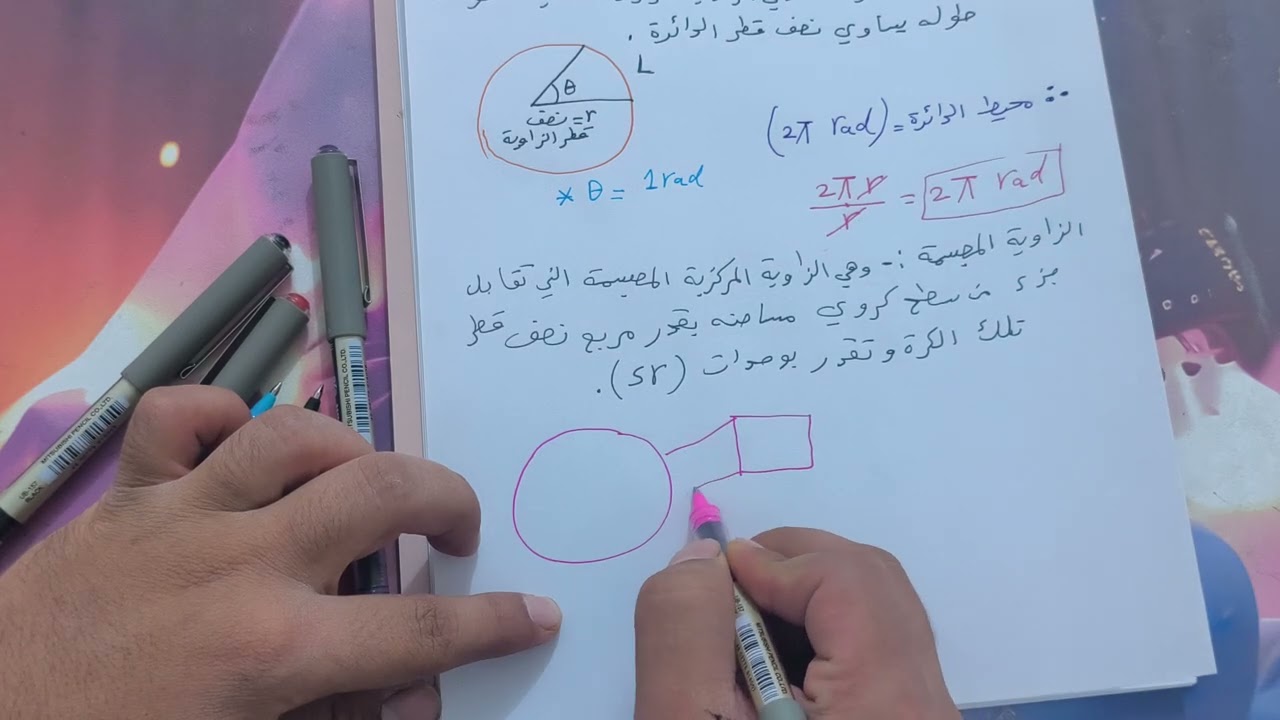 طوله يساوي نصف قطر الدائرة .
L
θ
r = نصف
قطر الزاوية
* θ = 1 rad
∴ محيط الدائرة = (2π rad)
2πr / r = 2π rad
الزاوية المجسمة :- وهي الزاوية المركزية المجسمة التي تقابل
جزء من سطح كروي مساحته بقدر مربع نصف قطر
تلك الكرة و تقدر بوحدات (sr).
MITSUBISHI PENCIL CO.,LTD.
UB-157
BLACK